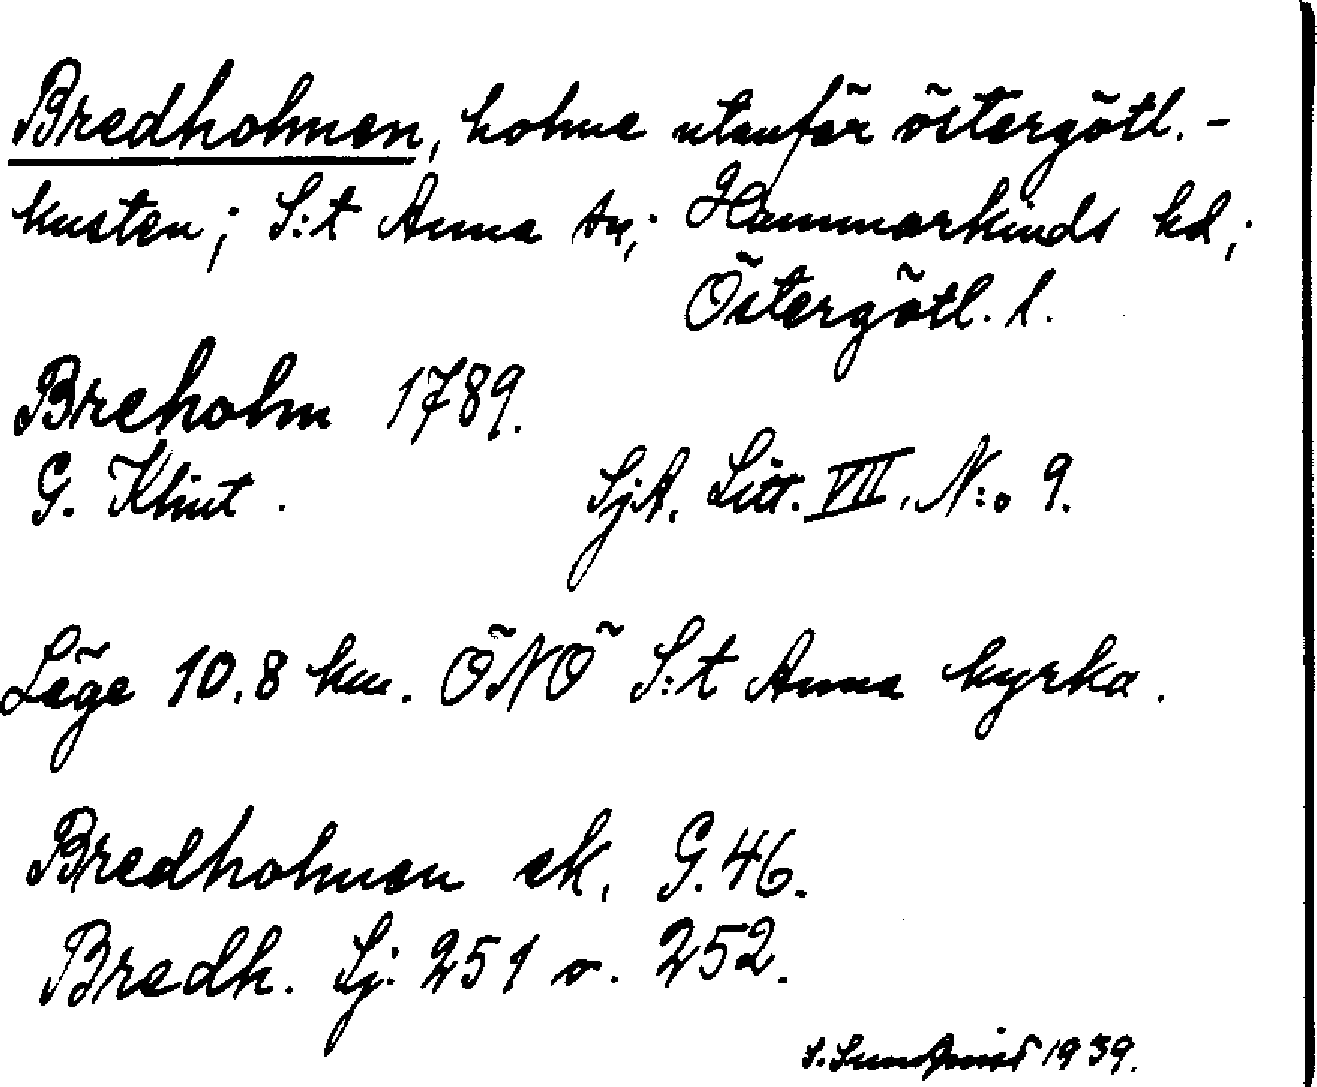 Bredholmen, holme utanför östergötl.-
kusten; S:t Anna sn; Hammarkinds hd;
Östergötl. l.
Breholm 1789.
G. Klint. SjA. Litt. VII. N:o 9.
Läge 10.8 km. ÖNÖ S:t Anna kyrka.
Bredholmen ek. G. 46.
Bredh. Sj. 251 o. 252.
S. Sundqvist 1939.